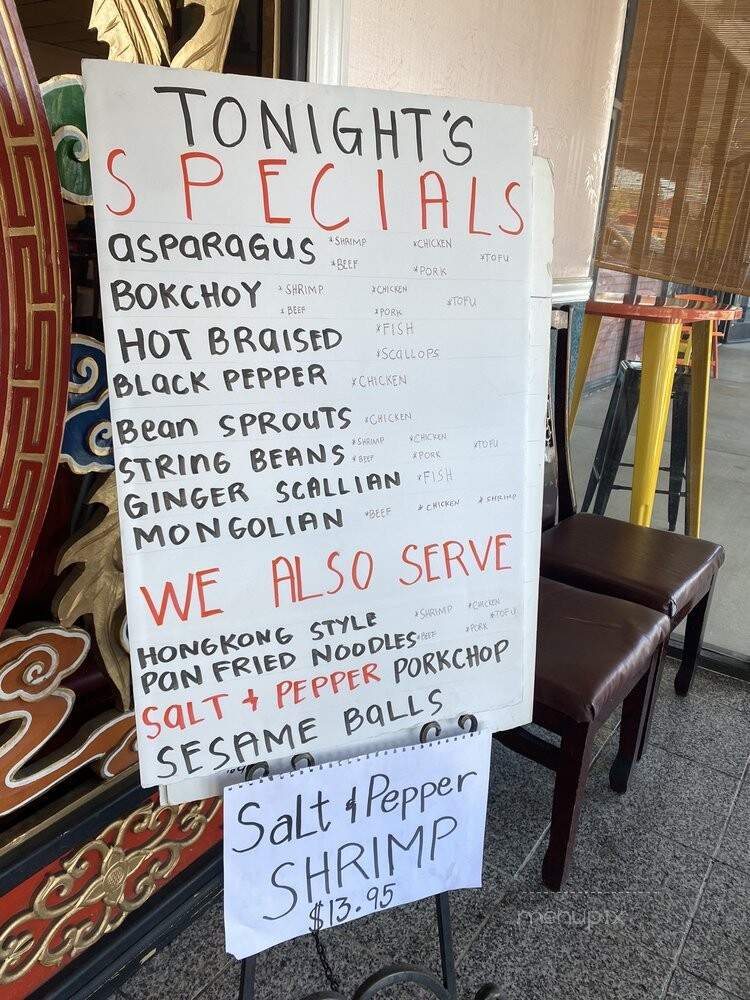 TONIGHT'S
SPECIALS
ASPARAGUS *SHRIMP *CHICKEN *TOFU
*BEEF *PORK
BOKCHOY *SHRIMP *CHICKEN *TOFU
*BEEF *PORK
HOT BRAISED *FISH
*SCALLOPS
BLACK PEPPER *CHICKEN
Bean SPROUTS *CHICKEN
STRING BEANS *SHRIMP *CHICKEN *TOFU
*BEEF *PORK
GINGER SCALLIAN *FISH
MONGOLIAN *BEEF *CHICKEN *SHRIMP
WE ALSO SERVE
HONGKONG STYLE *SHRIMP *CHICKEN
PAN FRIED NOODLES *BEEF *PORK *TOFU
SALT + PEPPER PORKCHOP
SESAME BALLS
Salt & Pepper
SHRIMP
$13.95
menupix